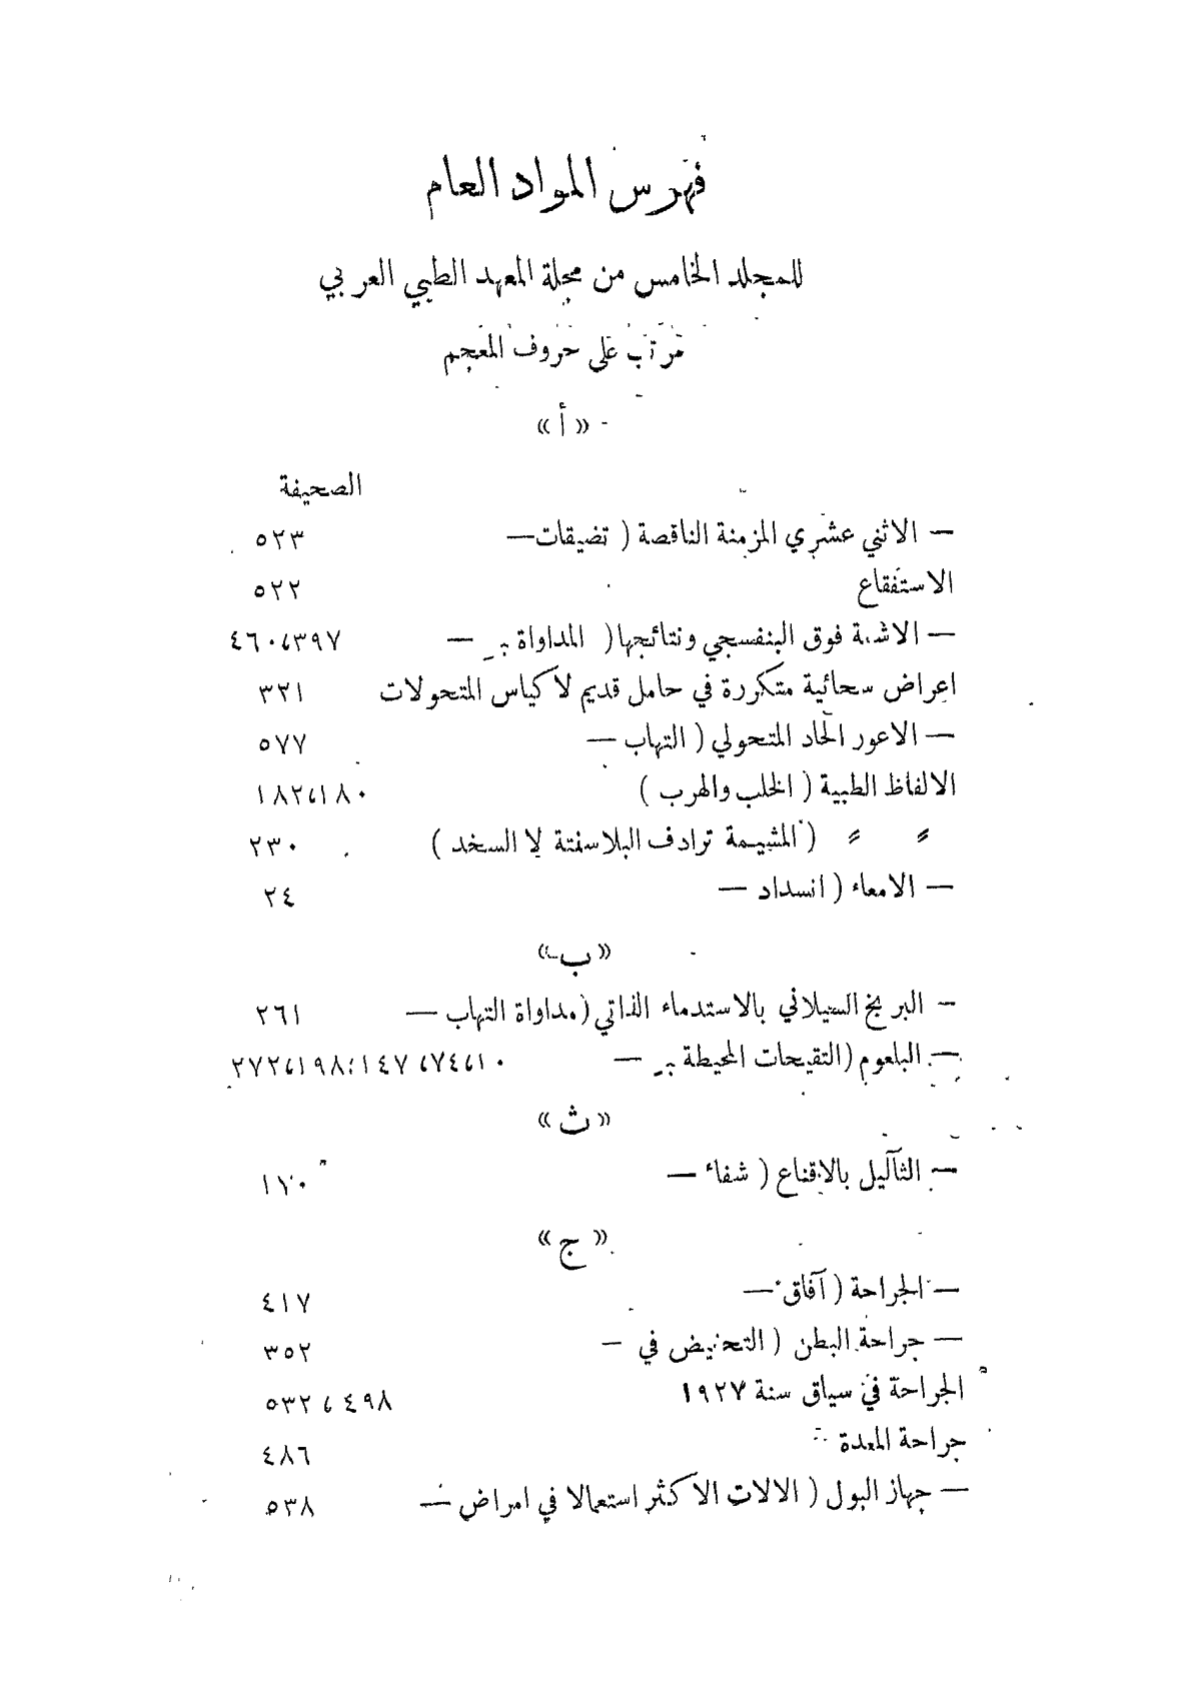 فهرس المواد العام
للمجلد الخامس من مجلة المعهد الطبي العربي
مرتب على حروف المعجم
« أ »
الصحيفة
— الاثني عشري المزمنة الناقصة ( تضيقات — ٥٢٣
الاستفقاع ٥٢٢
— الاشعة فوق البنفسجي ونتائجها ( المداواة بـ — ٣٩٧،٤٦٠
اعراض سحائية متكررة في حامل قديم لاكياس المتحولات ٣٢١
— الاعور الحاد المتحولي ( التهاب — ٥٧٧
الالفاظ الطبية ( الخلب والهرب ) ١٨٠،١٨٢
〃 〃 ( المشيمة ترادف البلاسنتة لا السخد ) ٢٣٠
— الامعاء ( انسداد — ٢٤
« ب »
— البربخ السيلاني بالاستدماء الذاتي ( مداواة التهاب — ٢٦١
— البلعوم ( التقيحات المحيطة بـ — ١٠،٧٤،١٤٧،١٩٨،٢٧٢
« ث »
— الثآليل بالاقناع ( شفاء — ١٧٠
« ج »
— الجراحة ( آفاق — ٤١٧
— جراحة البطن ( التحضيض في — ٣٥٢
الجراحة في سياق سنة ١٩٢٧ ٤٩٨ ، ٥٣٢
جراحة المعدة ٤٨٦
— جهاز البول ( الالات الاكثر استعمالا في امراض — ٥٣٨